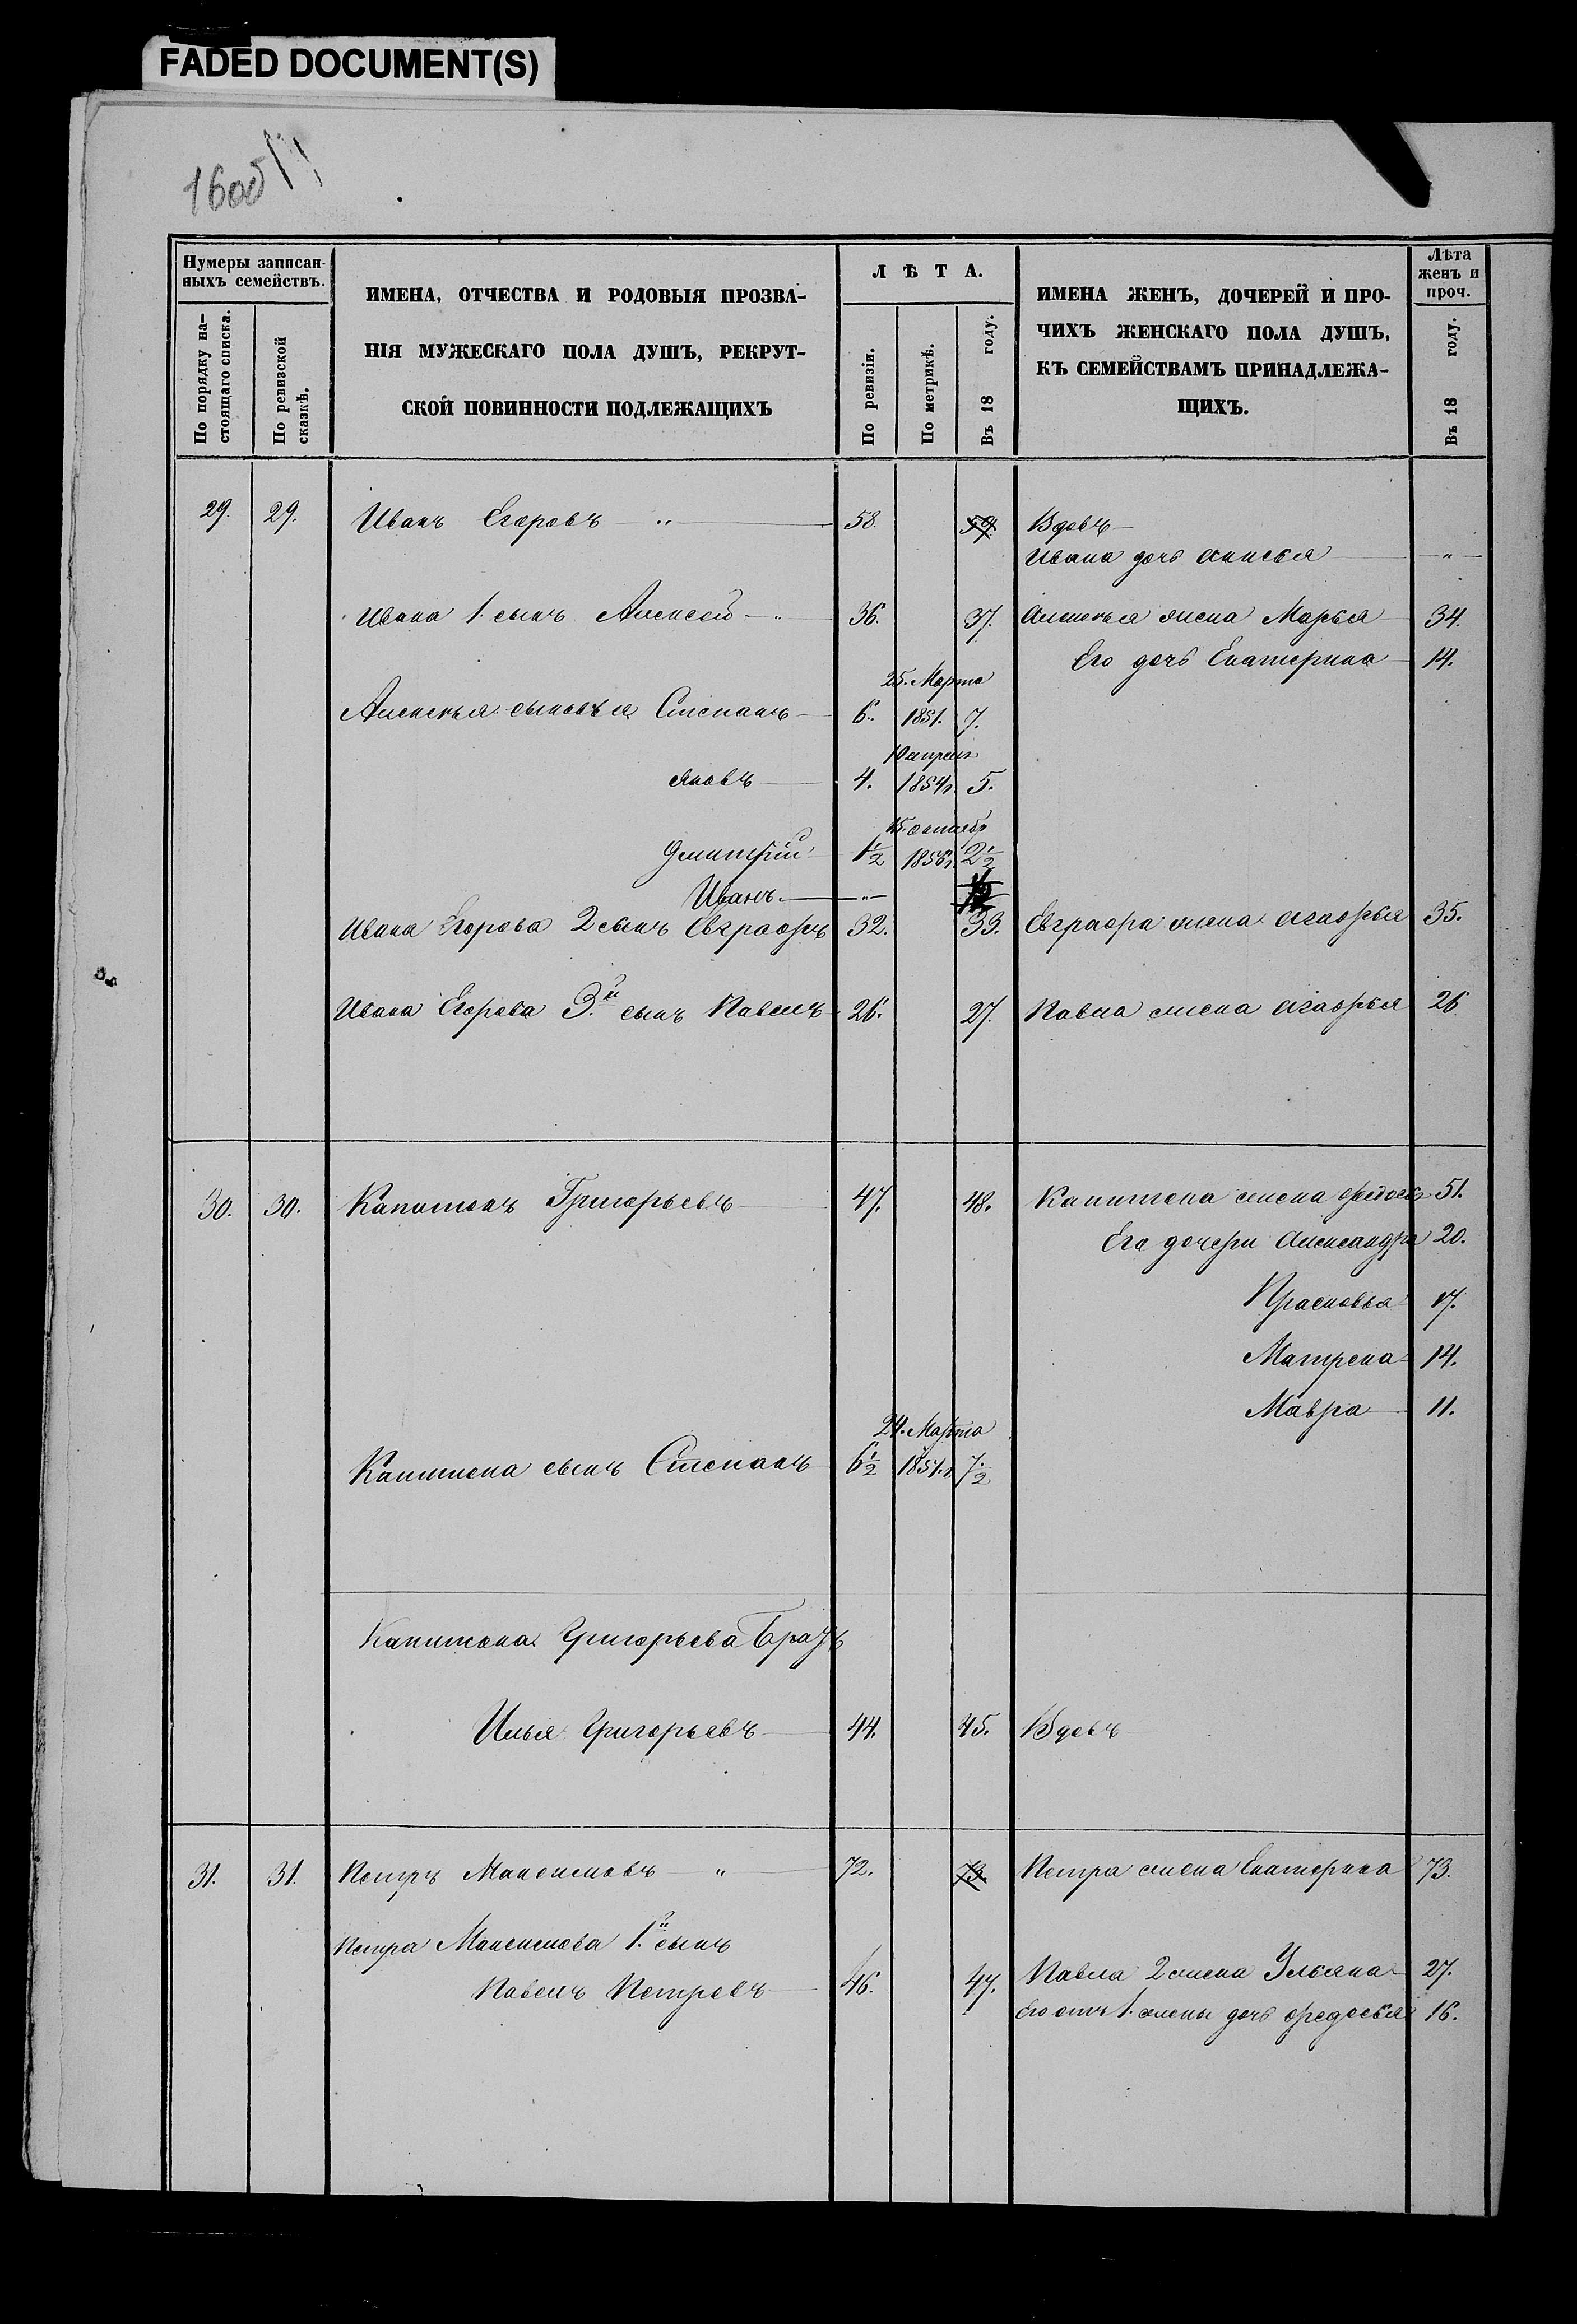 FADED DOCUMENT(S)
160об
Нумеры записан-
ныхъ семействъ.
По порядку на-
стоящаго списка.
По ревизской
сказкѣ.
ИМЕНА, ОТЧЕСТВА И РОДОВЫЯ ПРОЗВА-
НІЯ МУЖЕСКАГО ПОЛА ДУШЪ, РЕКРУТ-
СКОЙ ПОВИННОСТИ ПОДЛЕЖАЩИХЪ
ЛѢТА.
По ревизіи.
По метрикѣ.
Въ 18 году.
ИМЕНА ЖЕНЪ, ДОЧЕРЕЙ И ПРО-
ЧИХЪ ЖЕНСКАГО ПОЛА ДУШЪ,
КЪ СЕМЕЙСТВАМЪ ПРИНАДЛЕЖА-
ЩИХЪ.
Лѣта
женъ и
проч.
Въ 18 году.
29. 29. Иванъ Егоровъ — " — 58. 59. Вдовъ —
Ивана дочь Анисья — " —
Ивана 1. сынъ Алексей — " — 36. 37. Алексѣя жена Марья — 34.
Его дочь Екатерина — 14.
25. Марта
Алексѣя сыновья Степанъ — 6. 1851. 7.
10 апрел
Яковъ — 4. 1854г. 5.
15. октябр
Дмитрій — 1½ 1856г. 2½
Иванъ — " —
Ивана Егорова 2 сынъ Евграфъ 32. 33. Евграфа жена Агафья 35.
Ивана Егорова 3.й сынъ Павелъ 26. 27. Павла жена Агафья 26
30. 30. Капитонъ Григорьевъ — 47. 48. Капитона жена Федосья 51.
Его дочери Александра 20.
Прасковья 17.
Матрена 14.
Мавра — 11.
24. Марта
Капитона сынъ Степанъ 6½ 1851.г. 7.½
Капитона Григорьева Братъ
Илья Григорьевъ — 44. 45. Вдовъ
31. 31. Петръ Максимовъ — " — 72. 73. Петра жена Екатерина 73.
Петра Максимова 1.й сынъ
Павелъ Петровъ — 46. 47. Павла 2 жена Ульяна — 27.
Его отъ 1. жены дочь Федосья 16.